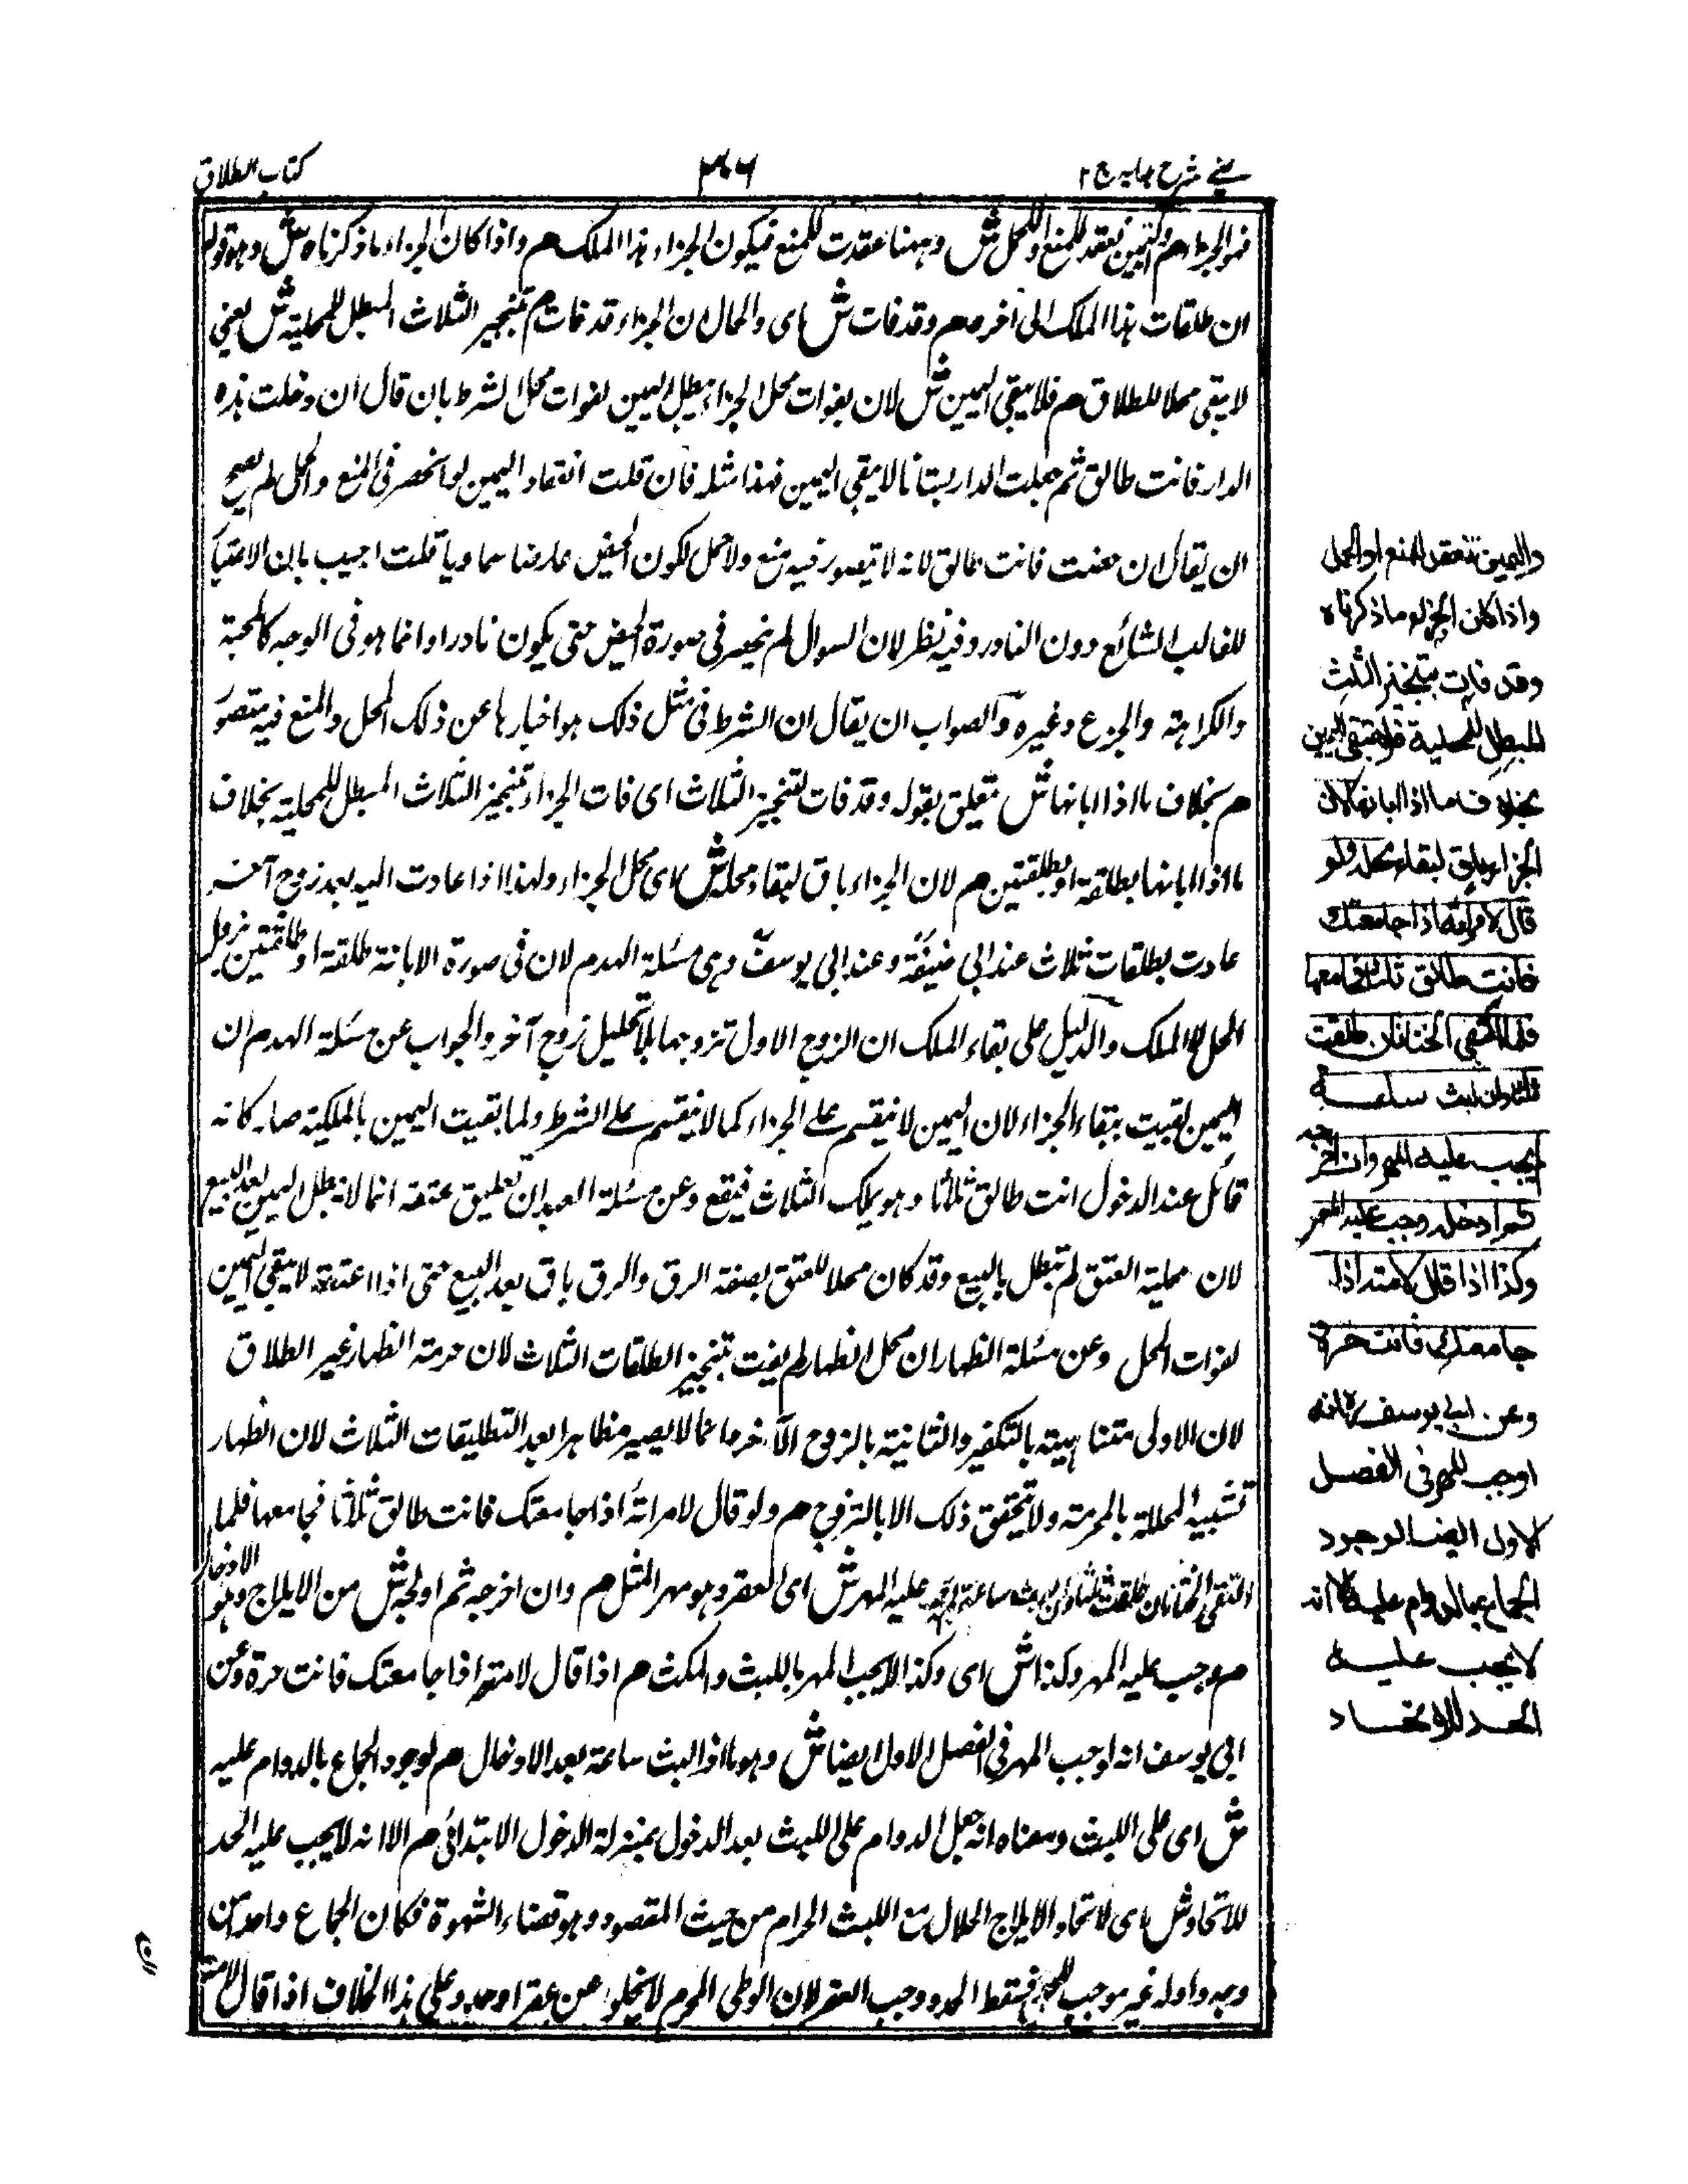 عيني شرح هدايه ج ٢
٣٠٦
كتاب الطلاق
فهو الجزاء هم واليمين تعقد للمنع او للحمل ش وههنا عقدت للمنع فيكون الجزاء هذا الملك هم واذا كان الجزاء ما ذكرناه ش وهو قوله
ان طلقات هذا الملك الى آخره هم وقد فات ش اى والحال ان الجزاء قد فات هم بتنجيز الثلاث المبطل للمحلية ش يعني
لا يبقى محلا للطلاق هم فلا يبقى اليمين ش لان بفوات محل الجزاء يبطل اليمين لفوات محل الشرط بان قال ان دخلت هذه
الدار فانت طالق ثم جعلت الدار بستانا لا يبقى اليمين فهذا مثله فان قلت انعقاد اليمين لو انحصر فى المنع والحمل لم يصح
ان يقال ان حضت فانت طالق لانه لا يتصور فيه منع ولا حمل لكون الحيض عارضا سماويا قلت اجيب بان الاعتبار
للغالب الشائع دون النادر وفيه نظر لان السوال لم ينحصر فى صورة الحيض حتى يكون نادرا وانما هو فى الوجه كالمحبة
والكراهة والجزع وغيره والصواب ان يقال ان الشرط فى مثل ذلك هو اخبارها عن ذلك المحل والمنع فيه متصور
هم بخلاف ما اذا ابانها ش متعلق بقوله وقد فات لتنجيز الثلاث اى فات الجزاء بتنجيز الثلاث المبطل للمحلية بخلاف
ما اذا ابانها بطلقة او بطلقتين هم لان الجزاء باق لبقاء محله ش اى محل الجزاء ولهذا اذا عادت اليه بعد زوج آخر
عادت بطلقات ثلاث عند ابى حنيفة وعند ابى يوسف وهى مسئلة الهدم لان فى صورة الابانة طلقة او طلقتين يزول
المحل لا الملك والدليل على بقاء الملك ان الزوج الاول تزوجها بلا تحليل زوج آخر والجواب عن مسئلة الهدم ان
اليمين بقيت ببقاء الجزاء لان اليمين لا ينقسم على الجزاء كما لا ينقسم على الشرط ولما بقيت اليمين بالملكية صار كانه
قائل عند الدخول انت طالق ثلاثا وهو يملك الثلاث فيقع وعن مسئلة العبد ان تعليق عتقه انما لا يبطل اليمين بعد البيع
لان محلية العتق لم تبطل بالبيع وقد كان محلا للعتق بصفة الرق والرق باق بعد البيع حتى اذا اعتقه لا يبقى اليمين
لفوات المحل وعن مسئلة الظهار ان محل الظهار لم يفت بتنجيز الطلقات الثلاث لان حرمة الظهار غير الطلاق
لان الاولى متناهية بالتكفير والثانية بالزوج الآخر وانما لا يصير مظاهرا بعد التطليقات الثلاث لان الظهار
تشبيه المحللة بالمحرمة ولا يتحقق ذلك الا بالتزوج هم ولو قال لامرأته اذا جامعتك فانت طالق ثلاثا فجامعها فلما
التقى الختانان طلقت ثلاثا وان لبث ساعة لم يجب عليه المهر ش اى العقر وهو مهر المثل هم وان اخرجه ثم اولجه ش من الايلاج وهو الادخال
هم وجب عليه المهر وكذا ش اى وكذا لا يجب المهر باللبث والمكث هم اذا قال لامته اذا جامعتك فانت حرة وعن
ابى يوسف انه اوجب المهر فى الفصل الاول ايضا ش وهو ما اذا لبث ساعة بعد الادخال هم لوجود الجماع بالدوام عليه
ش اى على اللبث ومعناه انه جعل الدوام على اللبث بعد الدخول بمنزلة الدخول الابتدائى هم الا انه لا يجب عليه الحد
للاتحاد ش اى لاتحاد الايلاج الحلال مع اللبث الحرام من حيث المقصود وهو قضاء الشهوة فكان الجماع واحدا من
وجه واوله غير موجب للحد فسقط الحد ووجب العقر لان الوطى المحرم لا يخلو عن عقر او حد وعلى هذا الخلاف اذا قال لامته
واليمين تنعقد للمنع او الحمل
واذا كان الجزاء ما ذكرناه
وقد فات بتنجيز الثلث
المبطل للمحلية فلا تبقى اليمين
بخلاف ما اذا ابانها لان
الجزاء باق لبقاء محله ولو
قال لامرأته اذا جامعتك
فانت طالق ثلثا فجامعها
فلما التقى الختانان طلقت
ثلثا وان لبث ساعة
لم يجب عليه المهر وان اخرجه
ثم ادخله وجب عليه المهر
وكذا اذا قال لامته اذا
جامعتك فانت حرة
وعن ابى يوسف انه
اوجب المهر فى الفصل
الاول ايضا لوجود
الجماع بالدوام عليه الا انه
لا يجب عليه
الحد للاتحاد